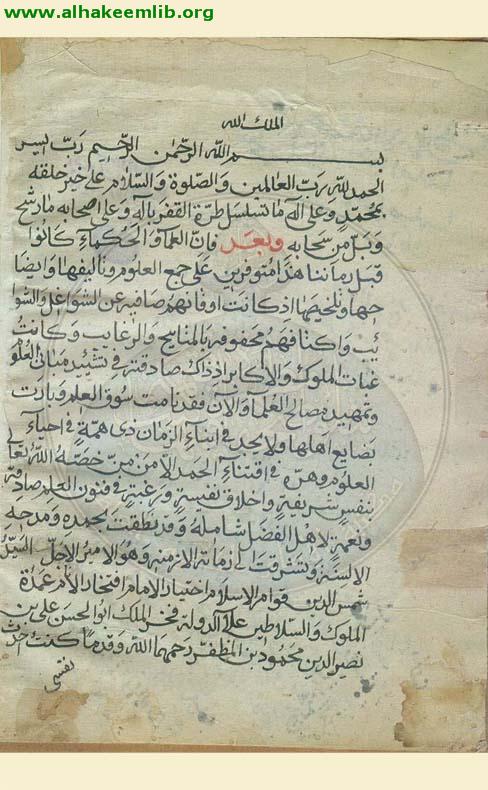 www.alhakeemlib.org
الملك لله
بسم الله الرحمن الرحيم رب يسر
الحمد لله رب العالمين والصلوة والسلام على خير خلقه
محمد وعلى آله ما تسلسل طرة القفر بآله وعلى اصحابه ما رشح
وبل من سحابه وبعد فان العلماء والحكماء كانوا
قبل زماننا هذا متوفرين على جمع العلوم وتاليفها وايضا
حها وتلخيصها اذ كانت اوقاتهم صافية عن الشواغل والشوا
ئب واكنافهم محفوفة بالمنايح والرغايب وكانت
غبات الملوك والاكابر اذ ذاك صادقة في تشييد مباني العلو
وتمهيد مصالح العلماء والآن فقد نامت سوق العلم وبارت
بضايع اهلها ولا يجد في ابناء الزمان ذى همة في احياء
العلوم وهزة في اقتناء الحمد الا من خصه الله تعالى
بنفس شريفة واخلاق نفيسة ورغبة في فنون العلم صادقة
ونعمة لاهل الفضل شاملة وقد نطقت بحمده ومدحه
الالسنة وتشرقت ازمانه الازمنة وهو الامير الاجل السيد
شمس الدين قوام الاسلام اختيار الامام افتخار الأمم عمدة
الملوك والسلاطين علاء الدولة فخر الملك ابو الحسن على بن
نصير الدين محمود بن المظفر رحمهما الله وقدما كنت احدث
نفسى